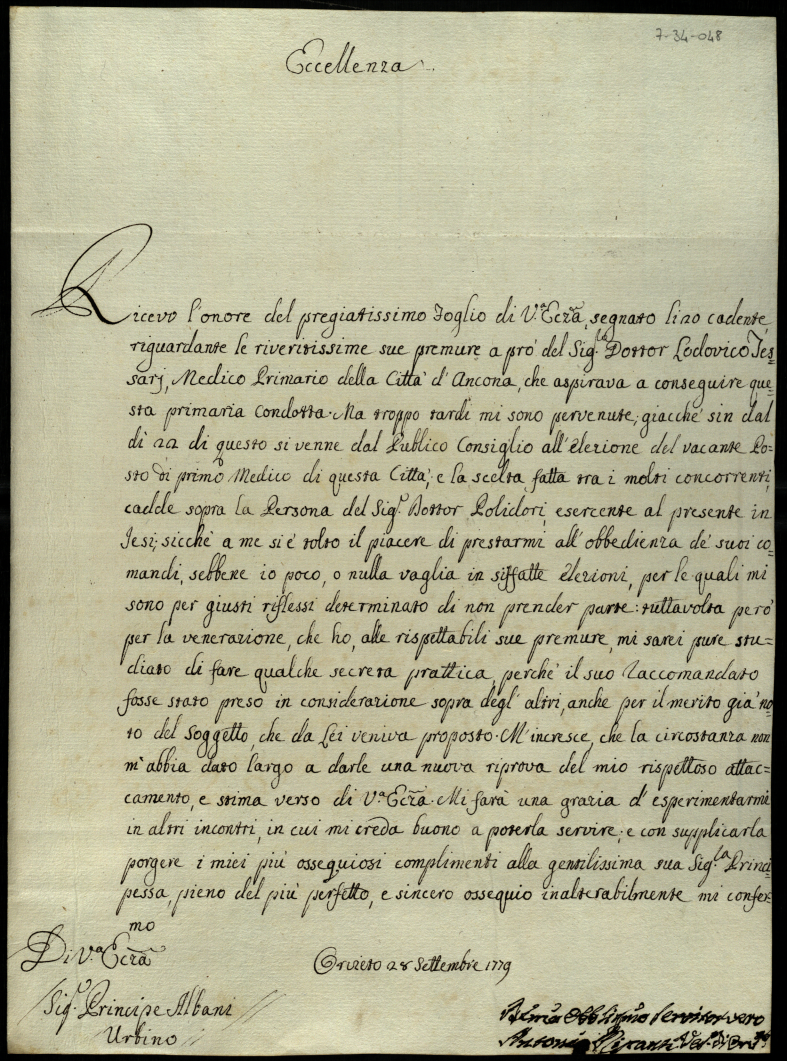 7-34-048
Eccellenza
Ricevo l'onore del pregiatissimo Foglio di V.ª Ecc̃a, segnato li 20 cadente,
riguardante le riveritissime sue premure a prò del Sig.r Dottor Lodovico Tes=
sarj, Medico Primario della Città d'Ancona, che aspirava a conseguire que=
sta primaria Condotta. Ma troppo tardi mi sono pervenute; giacchè sin dal
dì 22 di questo si venne dal Publico Consiglio all'elezione del vacante Po=
sto di primo Medico di questa Città; e la scelta, fatta tra i molti concorrenti,
cadde sopra la Persona del Sig.r Dottor Polidori, esercente al presente in
Jesi; sicchè a me si è tolto il piacere di prestarmi all'obbedienza de' suoi co=
mandi, sebbene io poco, o nulla vaglia in siffatte elezioni, per le quali mi
sono per giusti riflessi determinato di non prender parte: tuttavolta però
per la venerazione, che ho, alle rispettabili sue premure, mi sarei pure stu=
diato di fare qualche secreta prattica, perchè il suo Raccomandato
fosse stato preso in considerazione sopra degl'altri, anche per il merito già no=
to del Soggetto, che da Lei veniva proposto. M'incresce, che la circostanza non
m'abbia dato largo a darle una nuova riprova del mio rispettoso attac=
camento, e stima verso di V.ª Ecc̃a. Mi farà una grazia d'esperimentarmi
in altri incontri, in cui mi creda buono a poterla servire; e con supplicarla
porgere i miei più ossequiosi complimenti alla gentilissima sua Sig.ra Princi=
pessa, pieno del più perfetto, e sincero ossequio inalterabilmente mi confer=
mo
Di V.ª Ecc̃a
Orvieto 28 Settembre 1779
Sig.r Principe Albani
Urbino
Obblig̃mo Servitor vero
Antonio